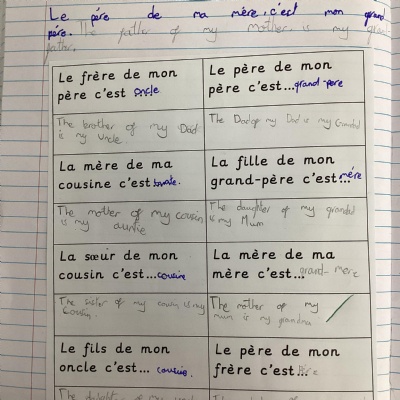 Le père de ma mère, c'est mon grand
père. The father of my mother is my gran
father.
Le frère de mon
père c'est oncle
Le père de mon
père c'est...grand-pere
The brother of my Dad
is my uncle
The Dad of my Dad is my Grandad
La mère de ma
cousine c'est tante.
La fille de mon
grand-père c'est... mére
The mother of my cousin
is my auntie
The daughter of my grandad
is my Mum
La sœur de mon
cousin c'est... cousine
La mère de ma
mère c'est... grand-mere
The sister of my cousin is my
Cousin.
The mother of my
mum is my grandma
Le fils de mon
oncle c'est... cousin.
Le père de mon
frère c'est... Père
The daughter of my